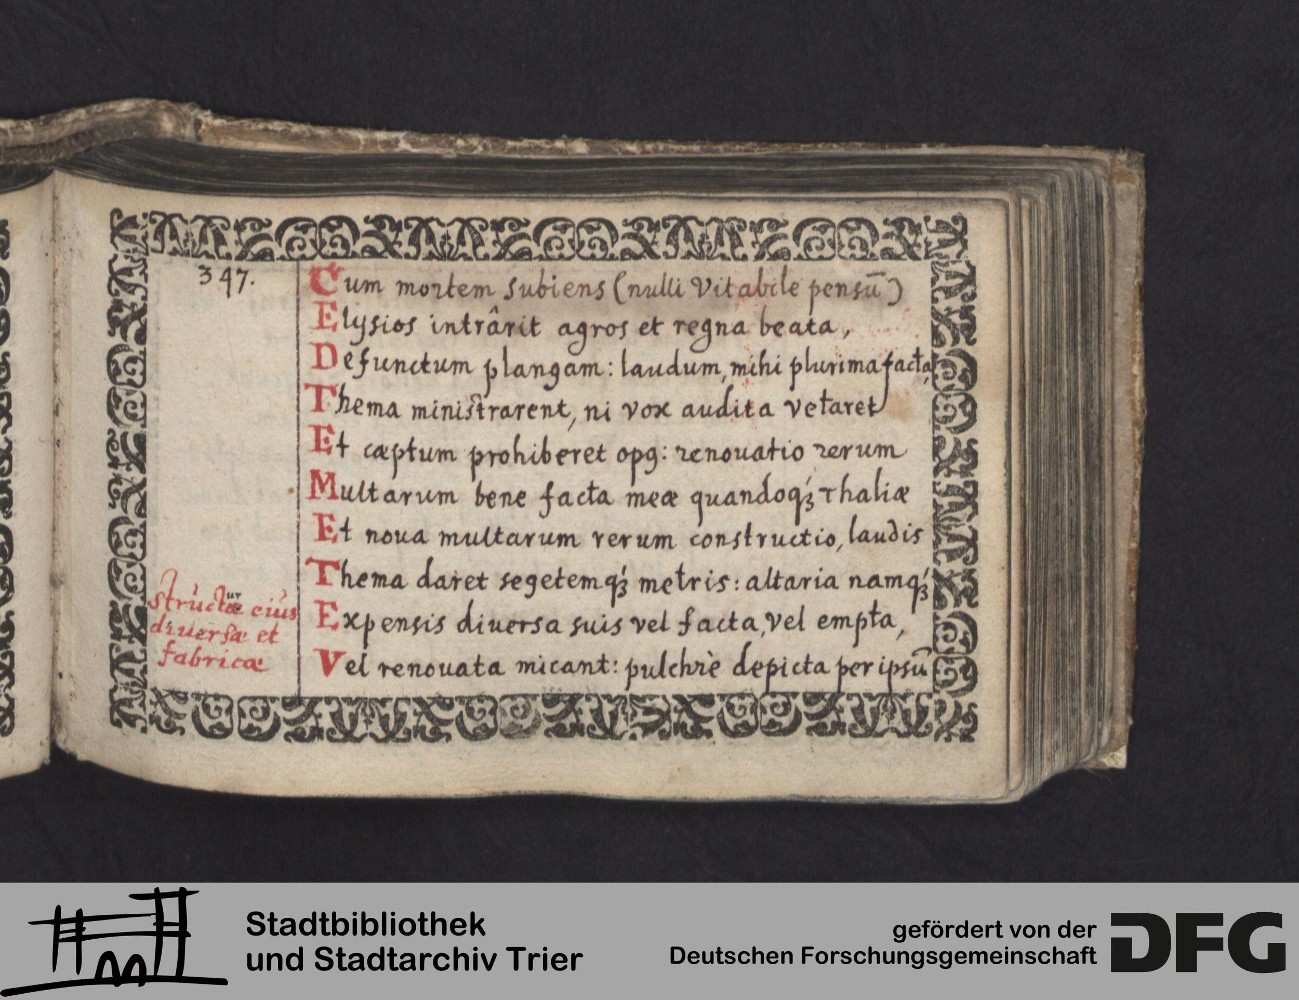 347.
Cum mortem subiens (nulli Vitabile pensū)
Elysios intrârit agros et regna beata,
Defunctum plangam: laudum, mihi plurima facta,
Thema ministrarent, ni vox audita vetaret
Et cæptum prohiberet opg: renouatio rerum
Multarum bene facta meæ quandoqʒ́ Thaliæ
Et noua multarum rerum constructio, laudis
Thema daret segetemqʒ́ metris: altaria namqʒ́
Expensis diuersa suis vel facta, vel empta,
Vel renouata micant: pulchrè depicta per ipsū
eius
diuersæ et
fabricæ
Stadtbibliothek
und Stadtarchiv Trier
gefördert von der
Deutschen Forschungsgemeinschaft
DFG